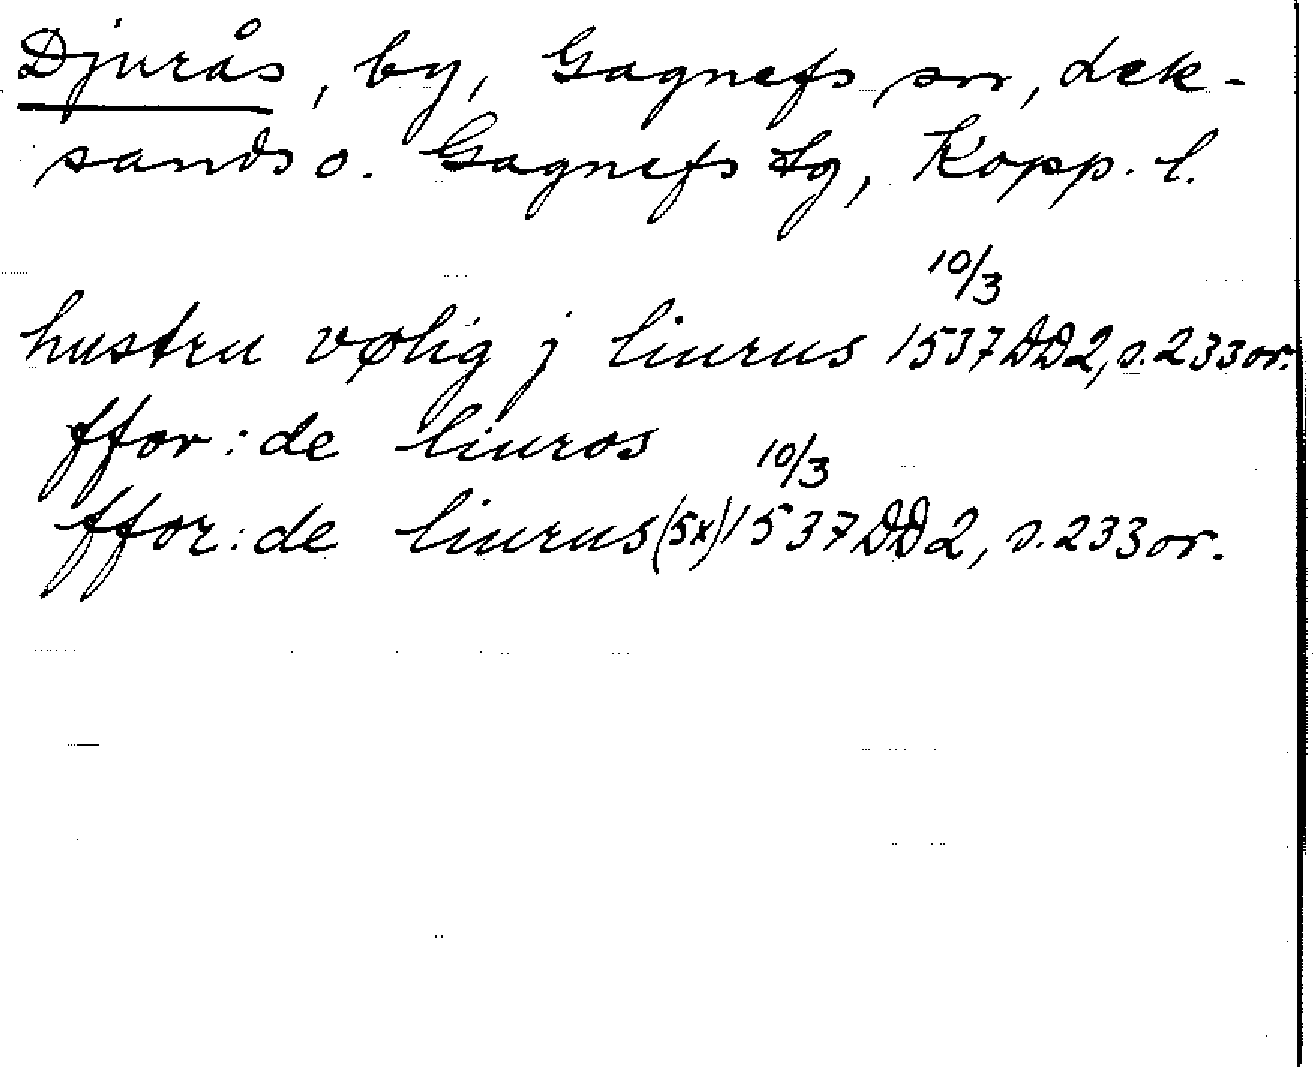 Djurås, by, Gagnefs sn, Lek-
sands o. Gagnefs tg, Kopp. l.
10/3
hustru vølig j liurus 1537 DD2, s. 233 or.
ffor: de liuros
10/3
ffor: de liurus (5x) 1537 DD2, s. 233 or.